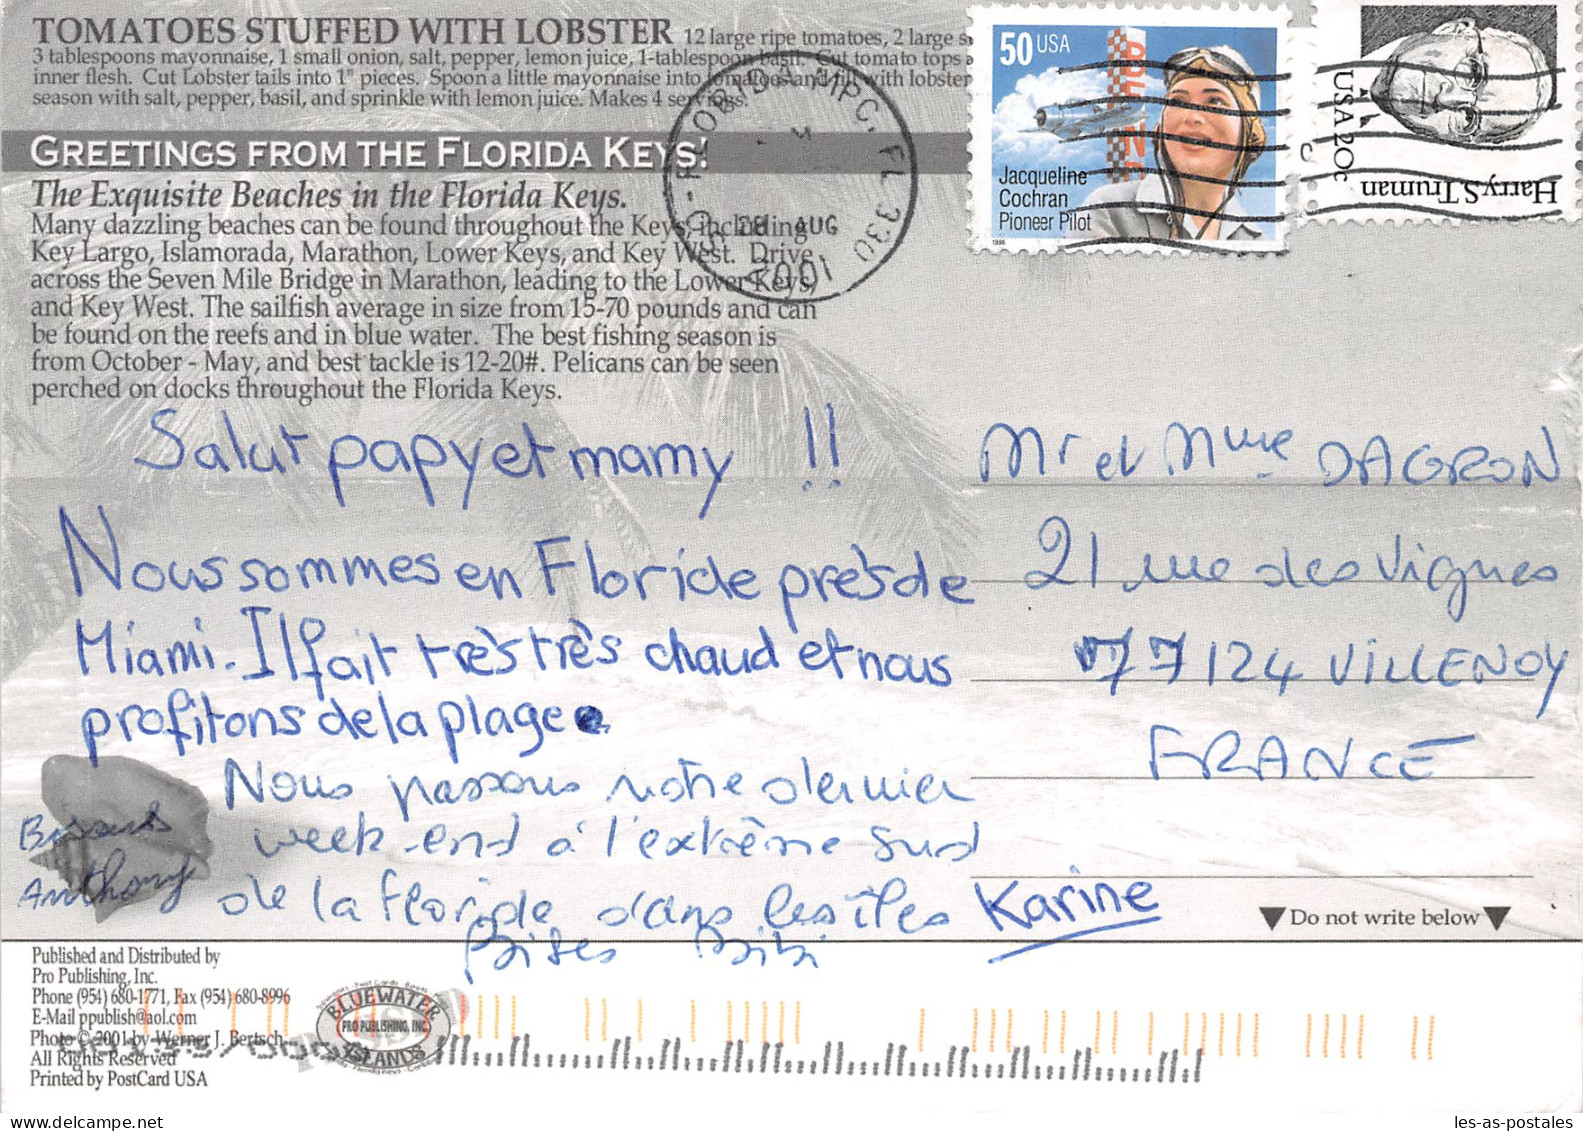 TOMATOES STUFFED WITH LOBSTER 12 large ripe tomatoes, 2 large
3 tablespoons mayonnaise, 1 small onion, salt, pepper, lemon juice, 1-tablespoon basil. Cut tomato tops
inner flesh. Cut Lobster tails into 1" pieces. Spoon a little mayonnaise into tomatoes and fill with lobster
season with salt, pepper, basil, and sprinkle with lemon juice. Makes 4 servings.
GREETINGS FROM THE FLORIDA KEYS!
The Exquisite Beaches in the Florida Keys.
Many dazzling beaches can be found throughout the Keys, including
Key Largo, Islamorada, Marathon, Lower Keys, and Key West. Drive
across the Seven Mile Bridge in Marathon, leading to the Lower Keys,
and Key West. The sailfish average in size from 15-70 pounds and can
be found on the reefs and in blue water. The best fishing season is
from October - May, and best tackle is 12-20#. Pelicans can be seen
perched on docks throughout the Florida Keys.
MPC, FL 330
28 AUG
2001
50 USA
Jacqueline
Cochran
Pioneer Pilot
1996
Harry S. Truman
USA 20c
Salut papy et mamy !!
Nous sommes en Floride près de
Miami. Il fait très très chaud et nous
profitons de la plage.
Nous passons notre dernier
week-end à l'extrême sud
de la Floride dans les îles
Bisous
Anthony
Karine
Bises Bibi
Mr et Mme DAGRON
21 rue des Vignes
77124 VILLENOY
FRANCE
Do not write below
Published and Distributed by
Pro Publishing, Inc.
Phone (954) 680-1771, Fax (954) 680-8996
E-Mail ppublish@aol.com
Photo © 2001 by Werner J. Bertsch
All Rights Reserved
Printed by PostCard USA
BLUEWATER
PRO PUBLISHING, INC.
ISLANDS
les-as-postales